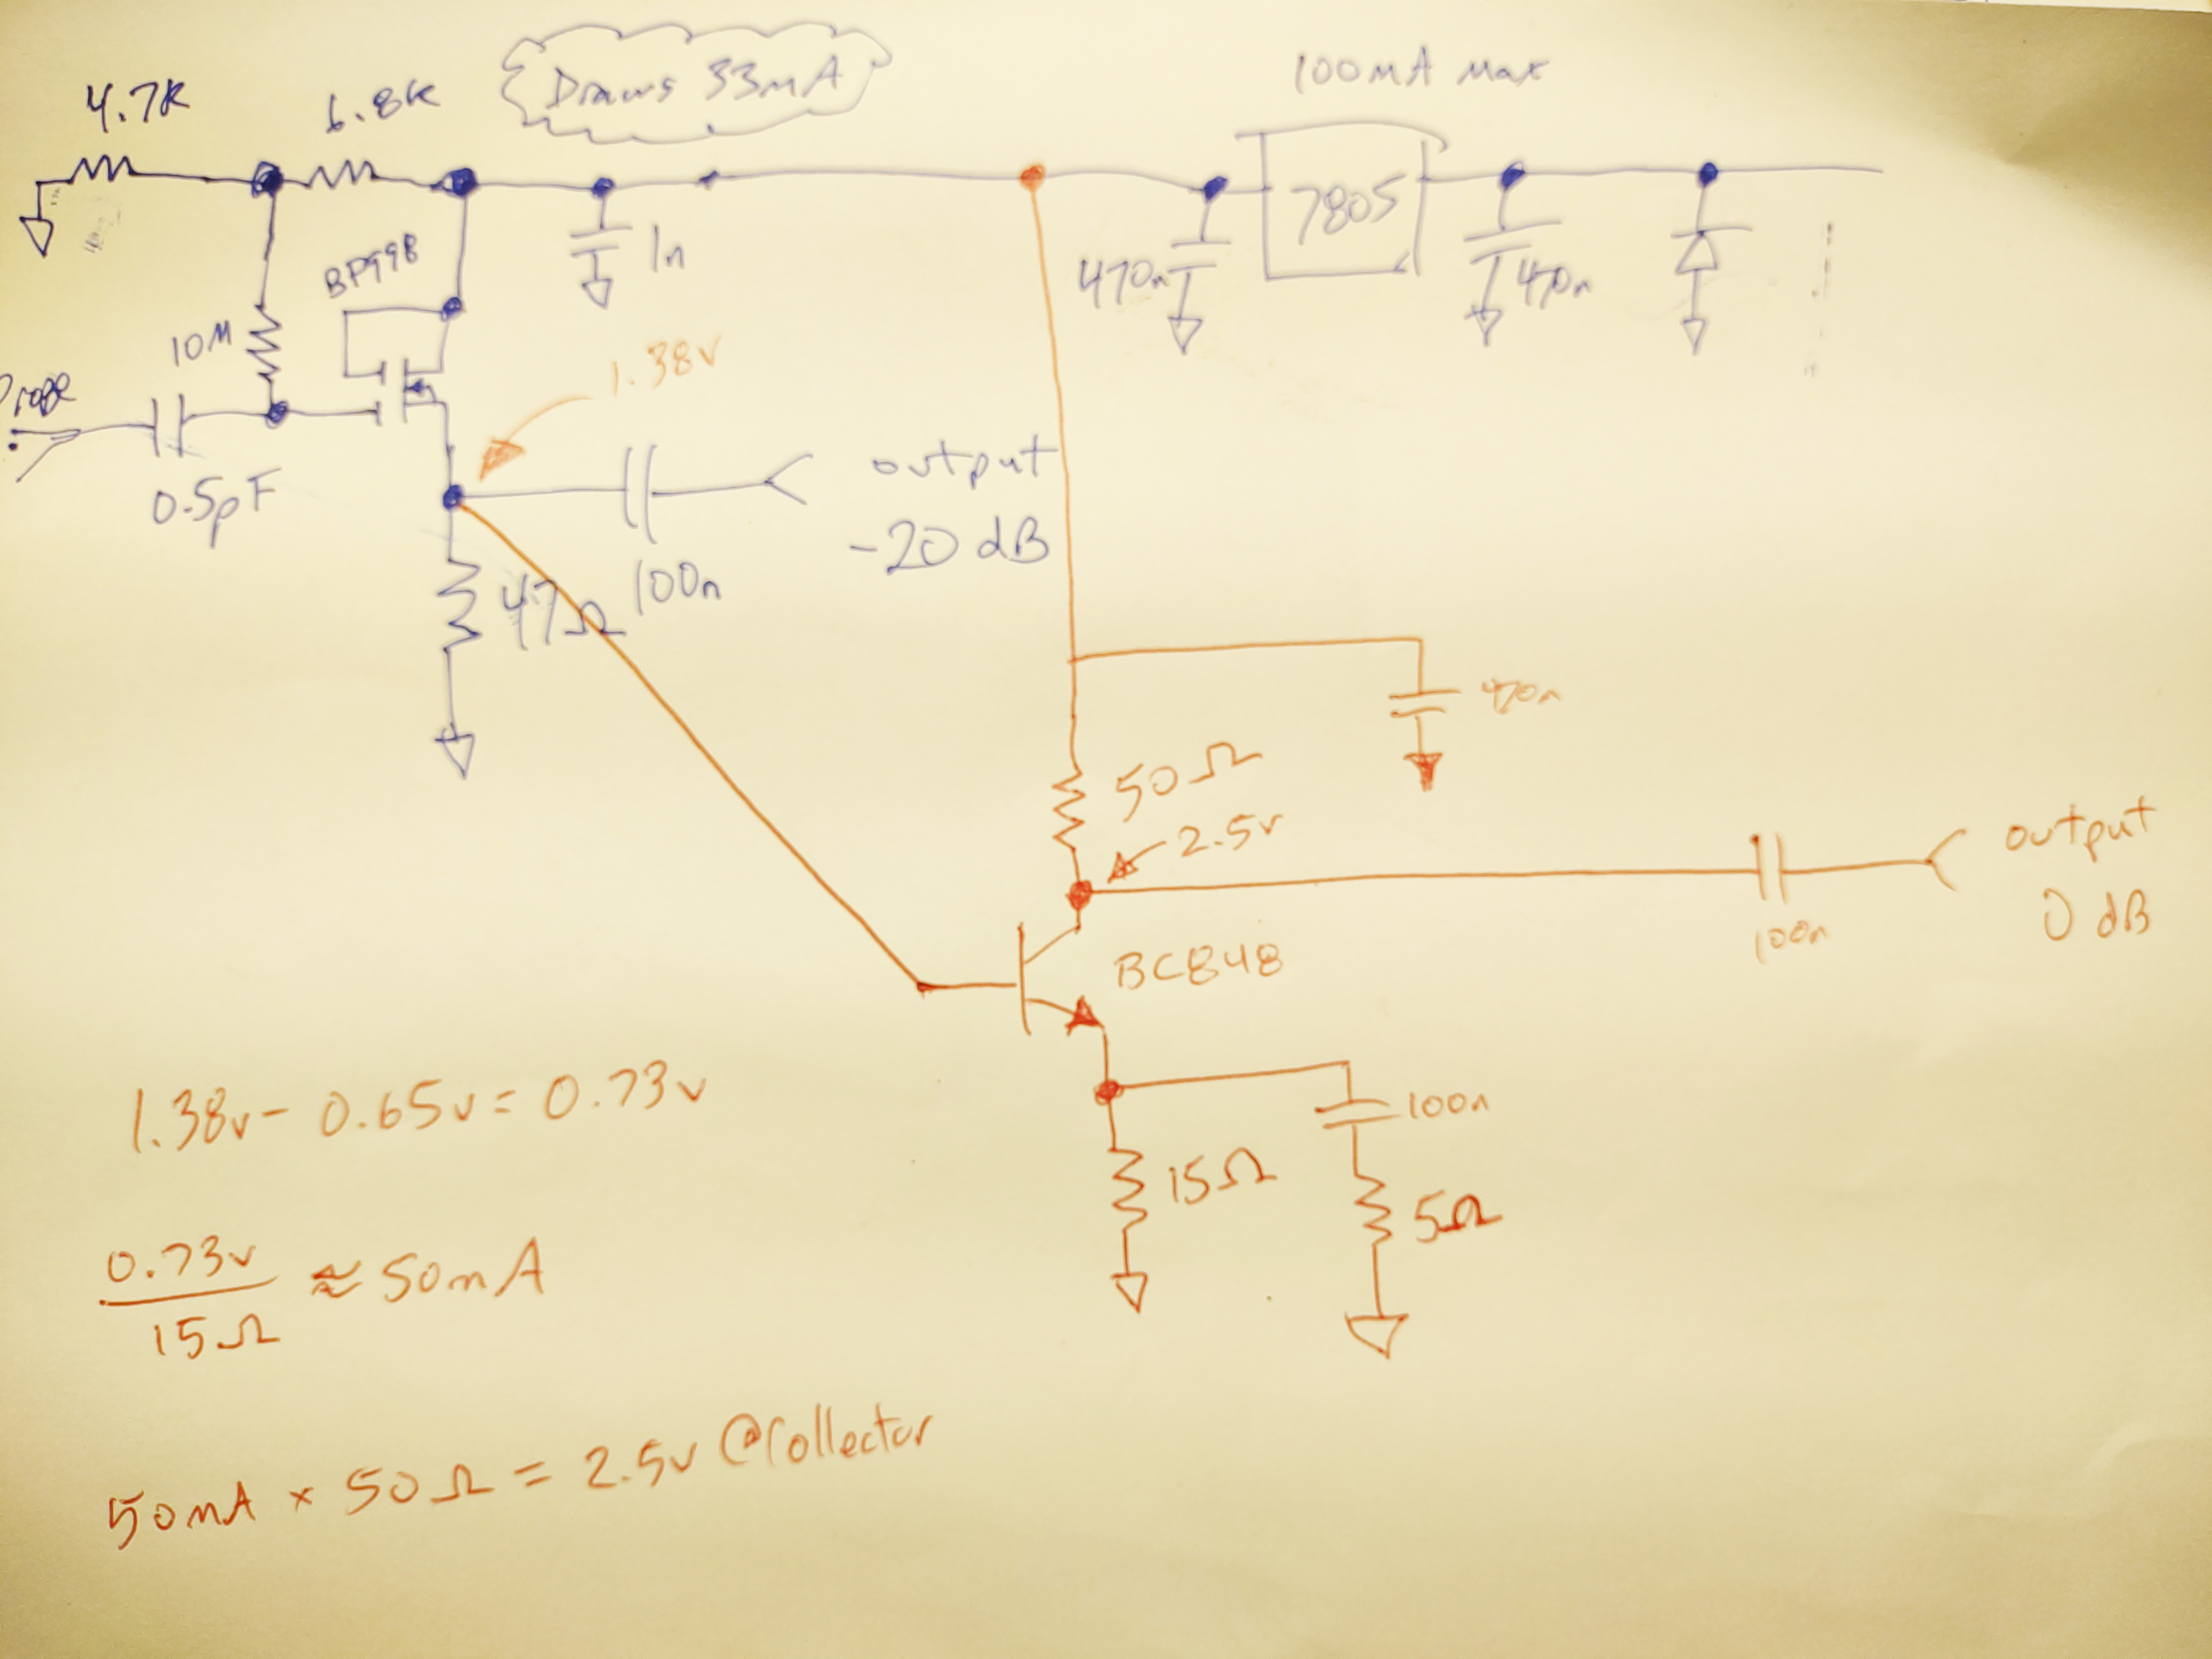 Draws 33mA
100mA Max
4.7K
6.8K
7805
BF998
1n
470n
470n
10M
1.38v
Probe
output
-20 dB
0.5pF
100n
47Ω
470n
50Ω
2.5v
output
0 dB
100n
BC848
100n
15Ω
5Ω
1.38v - 0.65v = 0.73v
0.73v
15Ω
≈ 50mA
50mA × 50Ω = 2.5v @Collector